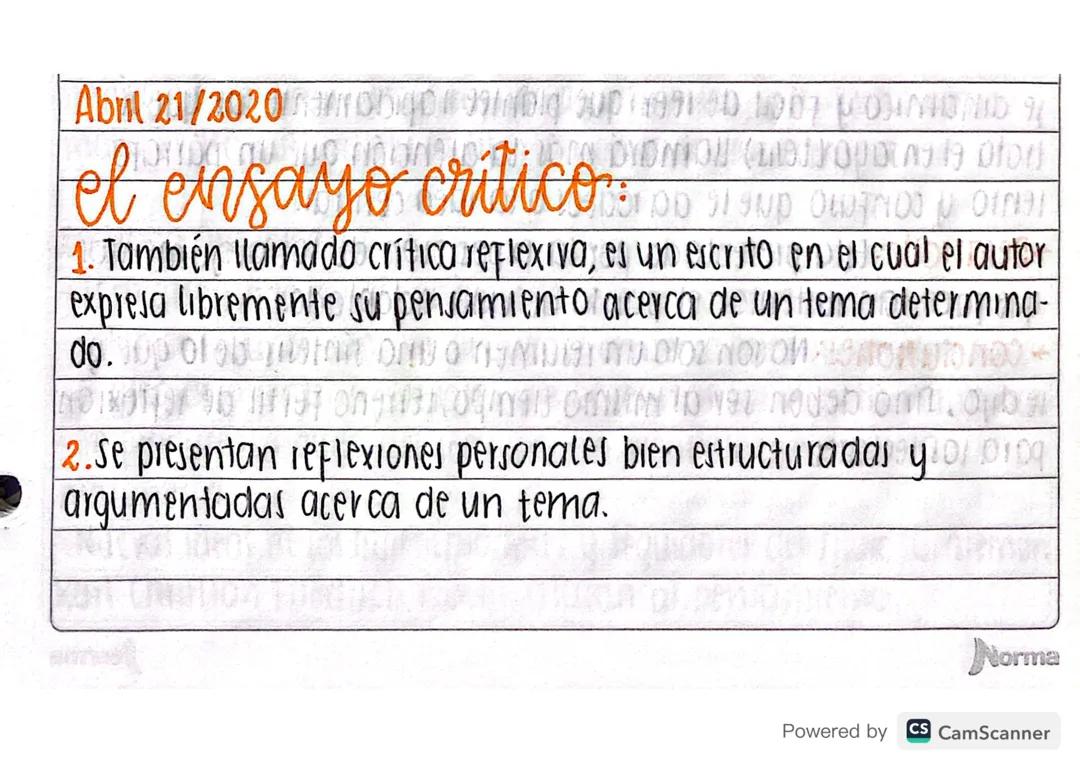 Abril 21/2020
el ensayo crítico:
1. También llamado crítica reflexiva, es un escrito en el cual el autor
expresa libremente su pensamiento acerca de un tema determina-
do.
2. Se presentan reflexiones personales bien estructuradas y
argumentadas acerca de un tema.
Norma
Powered by CS CamScanner